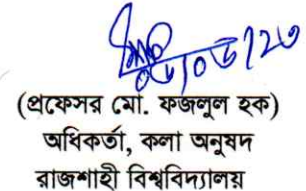 ০৬/০৬/২৩
(প্রফেসর মো. ফজলুল হক)
অধিকর্তা, কলা অনুষদ
রাজশাহী বিশ্ববিদ্যালয়